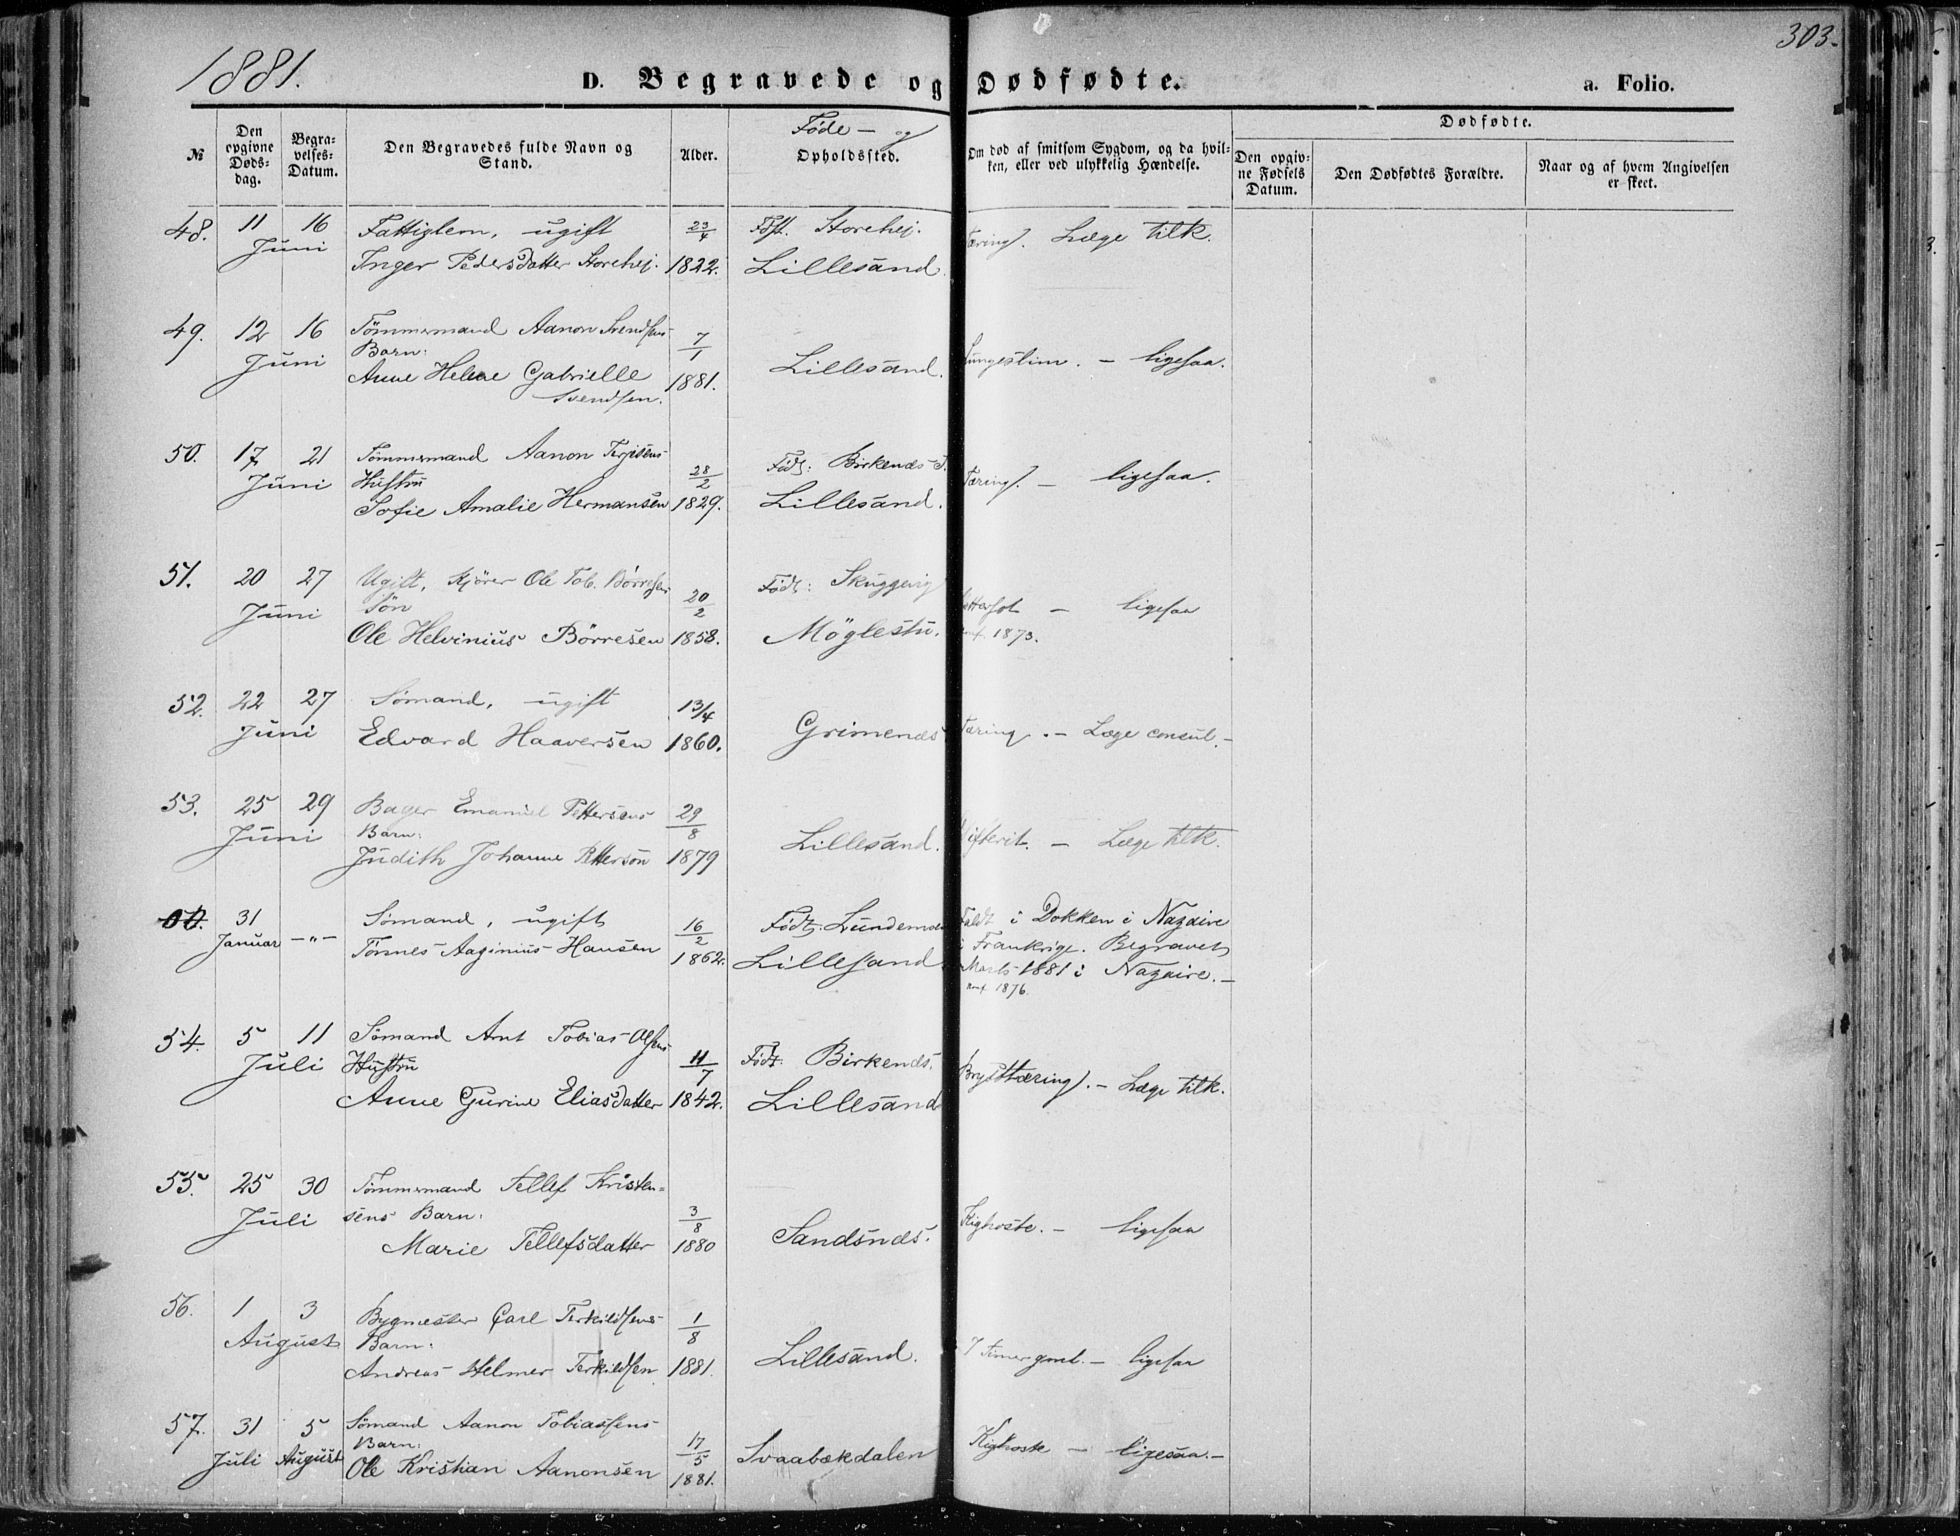 1881.
303.
D. Begravede og Dødfødte.
a. Folio.
№
Den opgivne Døds-dag.
Begra-velses-Datum.
Den Begravedes fulde Navn og Stand.
Alder.
Føde- og
Opholdssted.
Om død af smitsom Sygdom, og da hvil-ken, eller ved ulykkelig Hændelse.
Dødfødte.
Den opgiv-ne Fødsels Datum.
Den Dødfødtes Forældre.
Naar og af hvem Angivelsen er skeet.
48. 11 16 Fattiglem, ugift 23/4 Fdst. Storehej. Tæring. Læge tilk.
Juni Inger Pedersdatter Storehej. 1822. Lillesand.
49. 12 16 Tømmermand Aanon Svendsens
Juni Barn: 7/1 Lillesand. Lungeslim. — ligesaa.
Anne Helene Gabrielle 1881.
Svendsen.
50. 17 21 Tømmermand Aanon Terjesens
Juni Hustru 28/2 Født: Birkenæs Tæring. — ligesaa.
Sofie Amalie Hermansen 1829. Lillesand.
51. 20 27 Ugift, Kjører Ole Tob. Børresens
Juni Søn 20/2 Født: Skuggevig — ligesaa
Ole Helvinius Børresen 1858. Möglestu. conf. 1873.
52. 22 27 Sømand, ugift 13/4
Juni Edvard Haaversen 1860. Grimenæs Tæring. — Læge consul.—
53. 25 29 Bager Emanuel Pettersens 29/8
Juni Barn: Lillesand. Difterit. — Læge tilk.
Judith Johanne Petterson 1879
31 Sømand, ugift 16/2 Født: Faldt i Dokken i Nazaire
Januar —"— Tønnes Aaginius Hansen 1862. Lillesand i Frankrige. Begravet
Marts 1881 i Nazaire.—
conf. 1876.
54. 5 11 Sømand Arnt Tobias Olsens
Juli Hustru 11/7 Født: Birkenæs. Brysttæring. — Læge tilk.
Anne Gurine Eliasdatter 1842. Lillesand
55. 25 30 Tømmermand Tellef Kristen-
Juli sens Barn: 3/8 Sandsnæs. Kighoste. — ligesaa
Marie Tellefsdatter 1880
56. 1 3 Bygmester Carl Terkildsens
August Barn: 1/8 Lillesand. 7 timer gml. — ligesaa
Andreas Helmer Terkildsen 1881.
57. 31 5 Sømand Aanon Tobiassens
Juli August Barn: 17/5 Svaabækdalen Kighoste — ligesaa.—
Ole Kristian Aanonsen 1881.